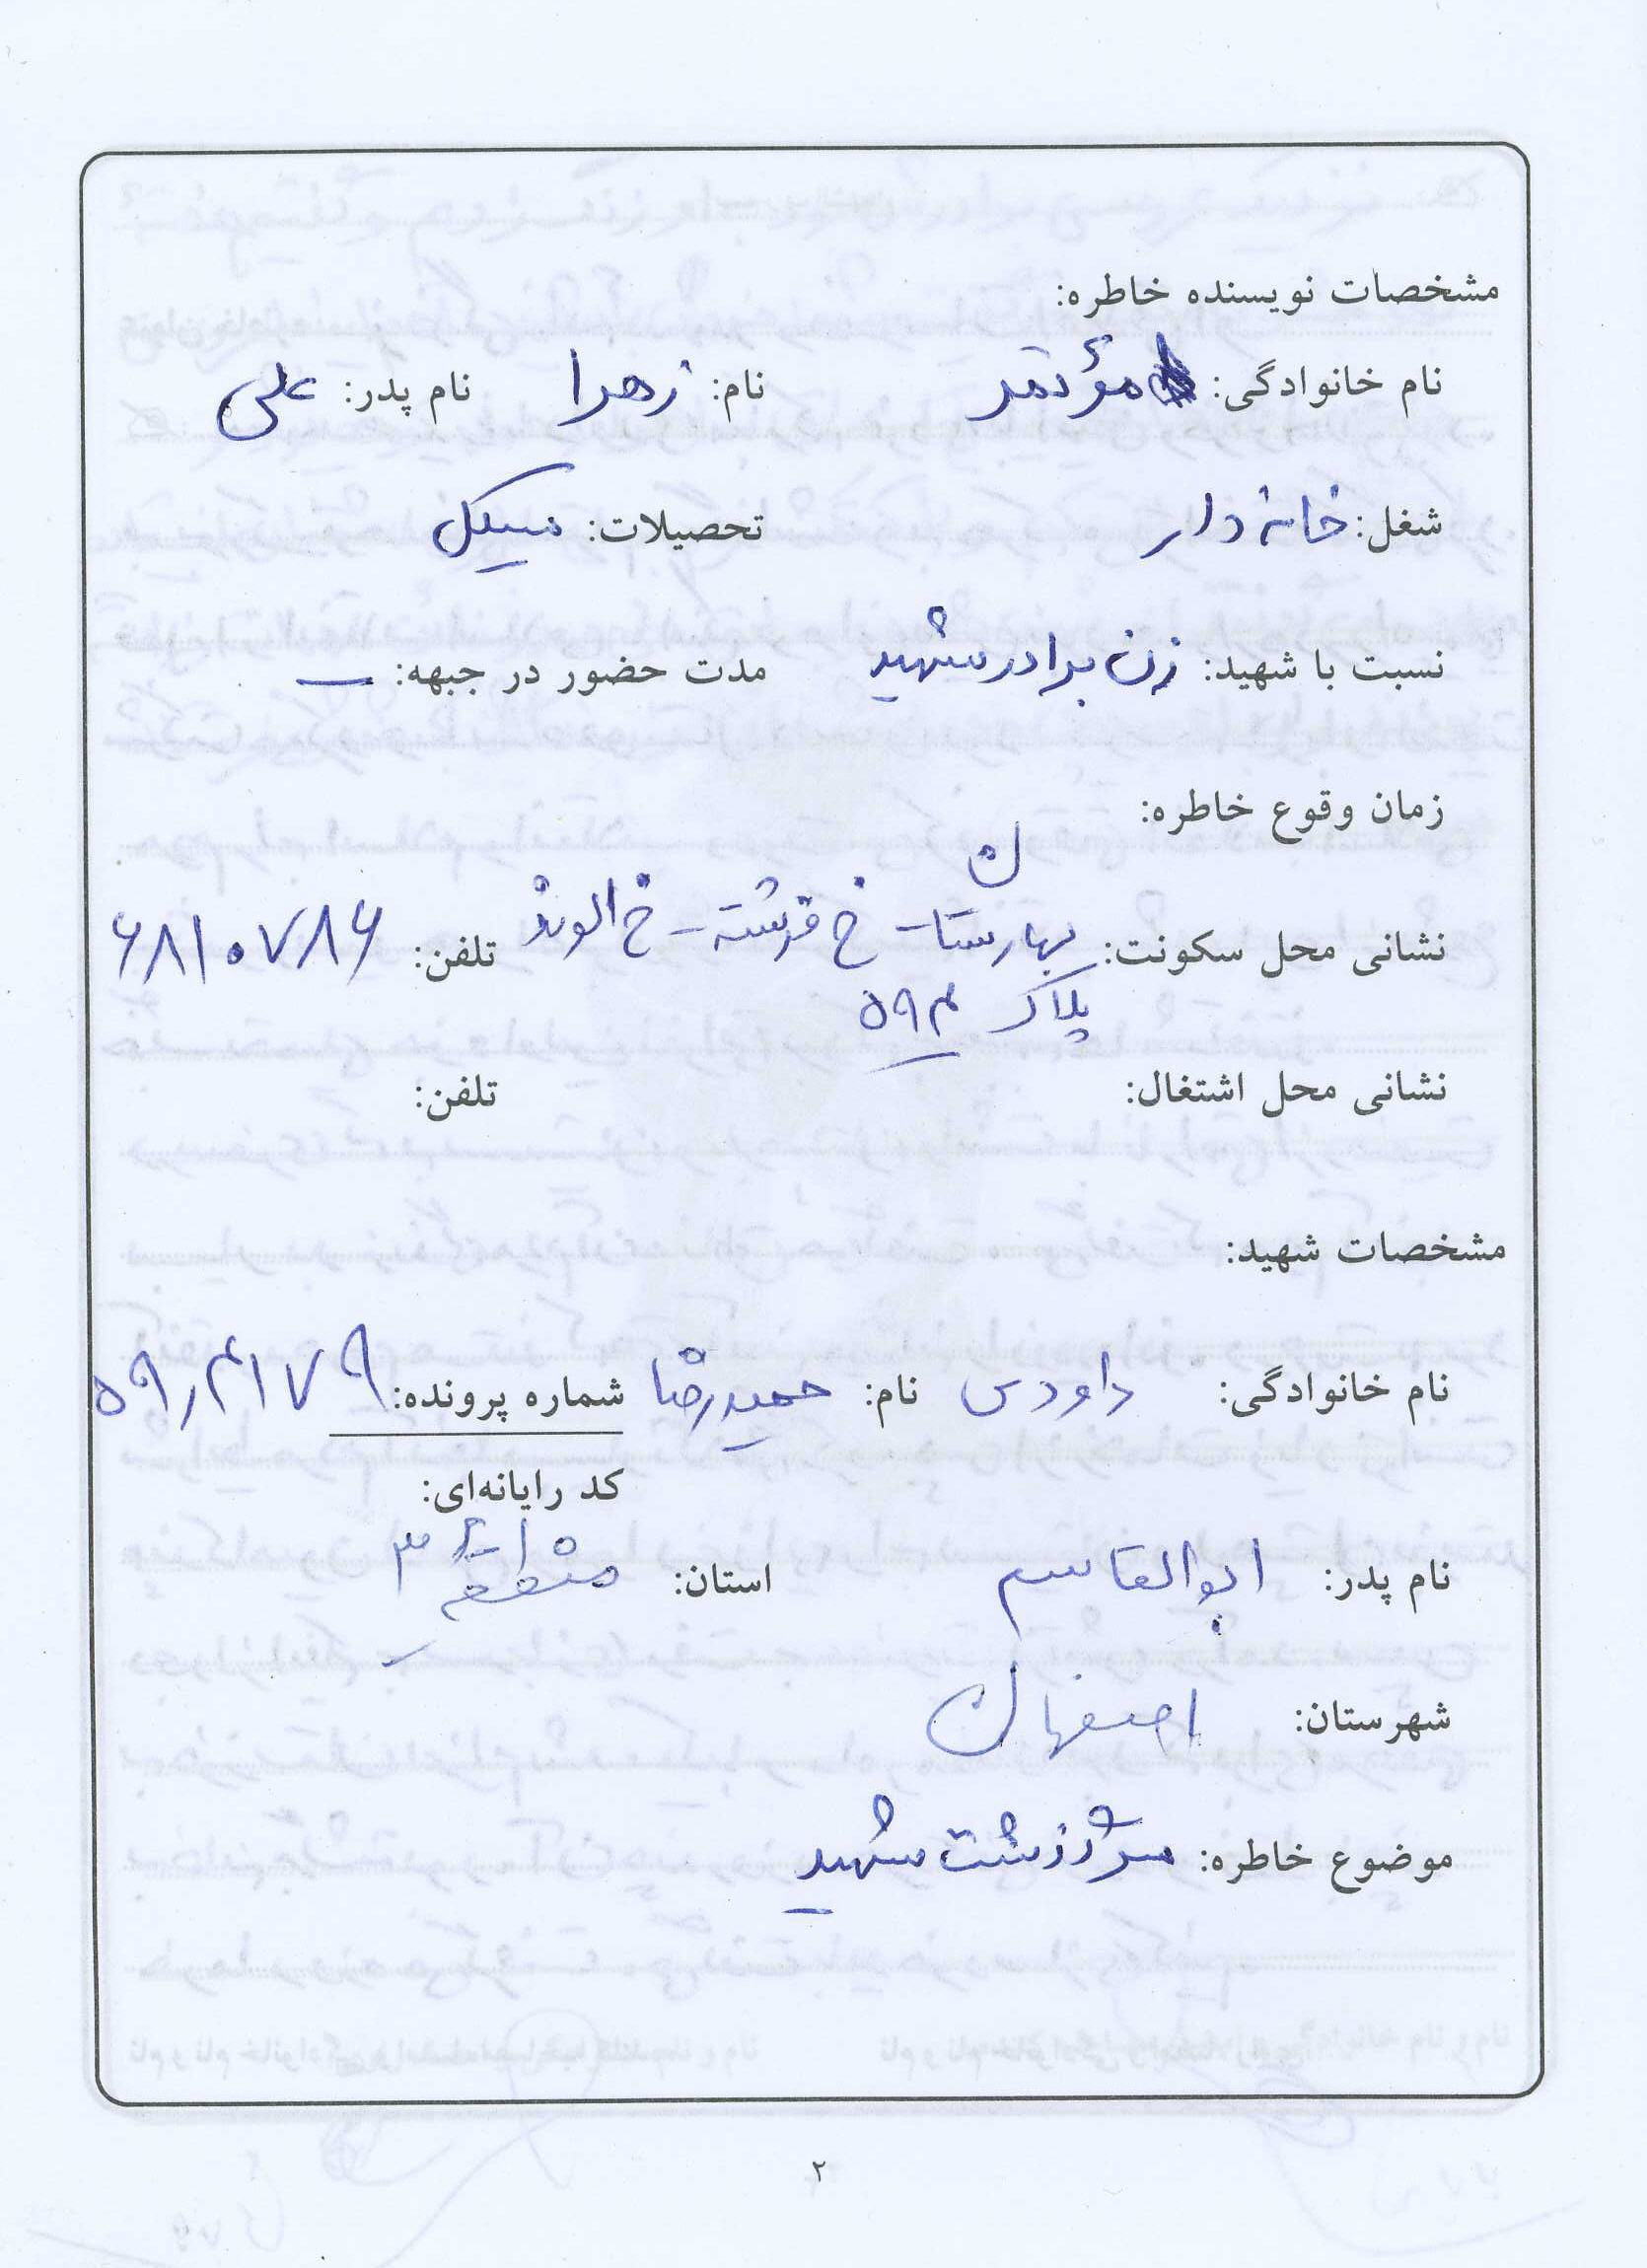 مشخصات نویسنده خاطره:
نام خانوادگی: مؤتمر نام: زهرا نام پدر: علی
شغل: خانه دار تحصیلات: سیکل
نسبت با شهید: زن برادر شهید مدت حضور در جبهه: —
زمان وقوع خاطره:
نشانی محل سکونت: بهارستان - خ فرشته - خ الوند تلفن: ۶۸۱۰۷۸۶
پلاک ۵۹۳
نشانی محل اشتغال: تلفن:
مشخصات شهید:
نام خانوادگی: داودی نام: حمیدرضا شماره پرونده: ۵۹۲۴۱۷۹
کد رایانه‌ای:
نام پدر: ابوالقاسم استان: منطقه ۳
شهرستان: اصفهان
موضوع خاطره: سرگذشت شهید
۲